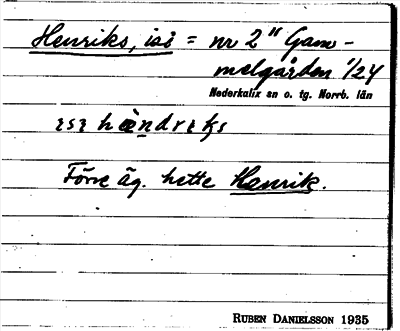 Henriks, isä = nr 2" Gam-
melgården 1/24
Nederkalix sn o. tg. Norrb. län
Förre äg. hette Henrik.
RUBEN DANIELSSON 1935